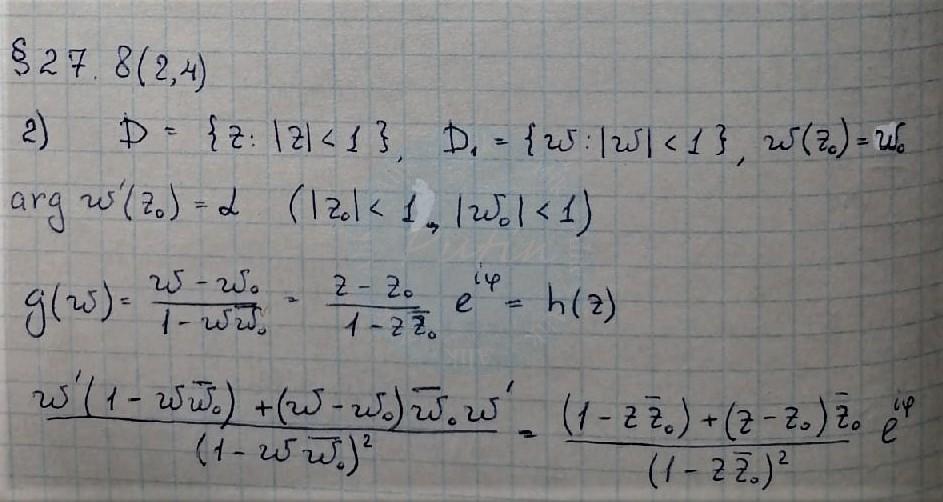 § 27. 8(2,4)
2) D = {z: |z| < 1}, D₁ = {w: |w| < 1}, w(z₀) = w₀
arg w'(z₀) = α (|z₀| < 1, |w₀| < 1)
g(w) = (w - w₀)/(1 - w w̄₀) = (z - z₀)/(1 - z z̄₀) e^{iφ} = h(z)
(w'(1 - w w̄₀) + (w - w₀) w̄₀ w')/(1 - w w̄₀)² = ((1 - z z̄₀) + (z - z₀) z̄₀)/(1 - z z̄₀)² e^{iφ}